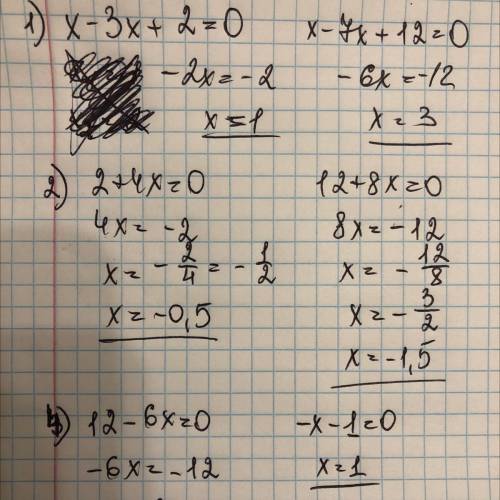 1) x - 3x + 2 = 0
-2x = -2
x = 1
x - 7x + 12 = 0
-6x = -12
x = 3
2) 2 + 4x = 0
4x = -2
x = -2/4 = -1/2
x = -0,5
12 + 8x = 0
8x = -12
x = -12/8
x = -3/2
x = -1,5
12 - 6x = 0
-6x = -12
-x - 1 = 0
x = 1